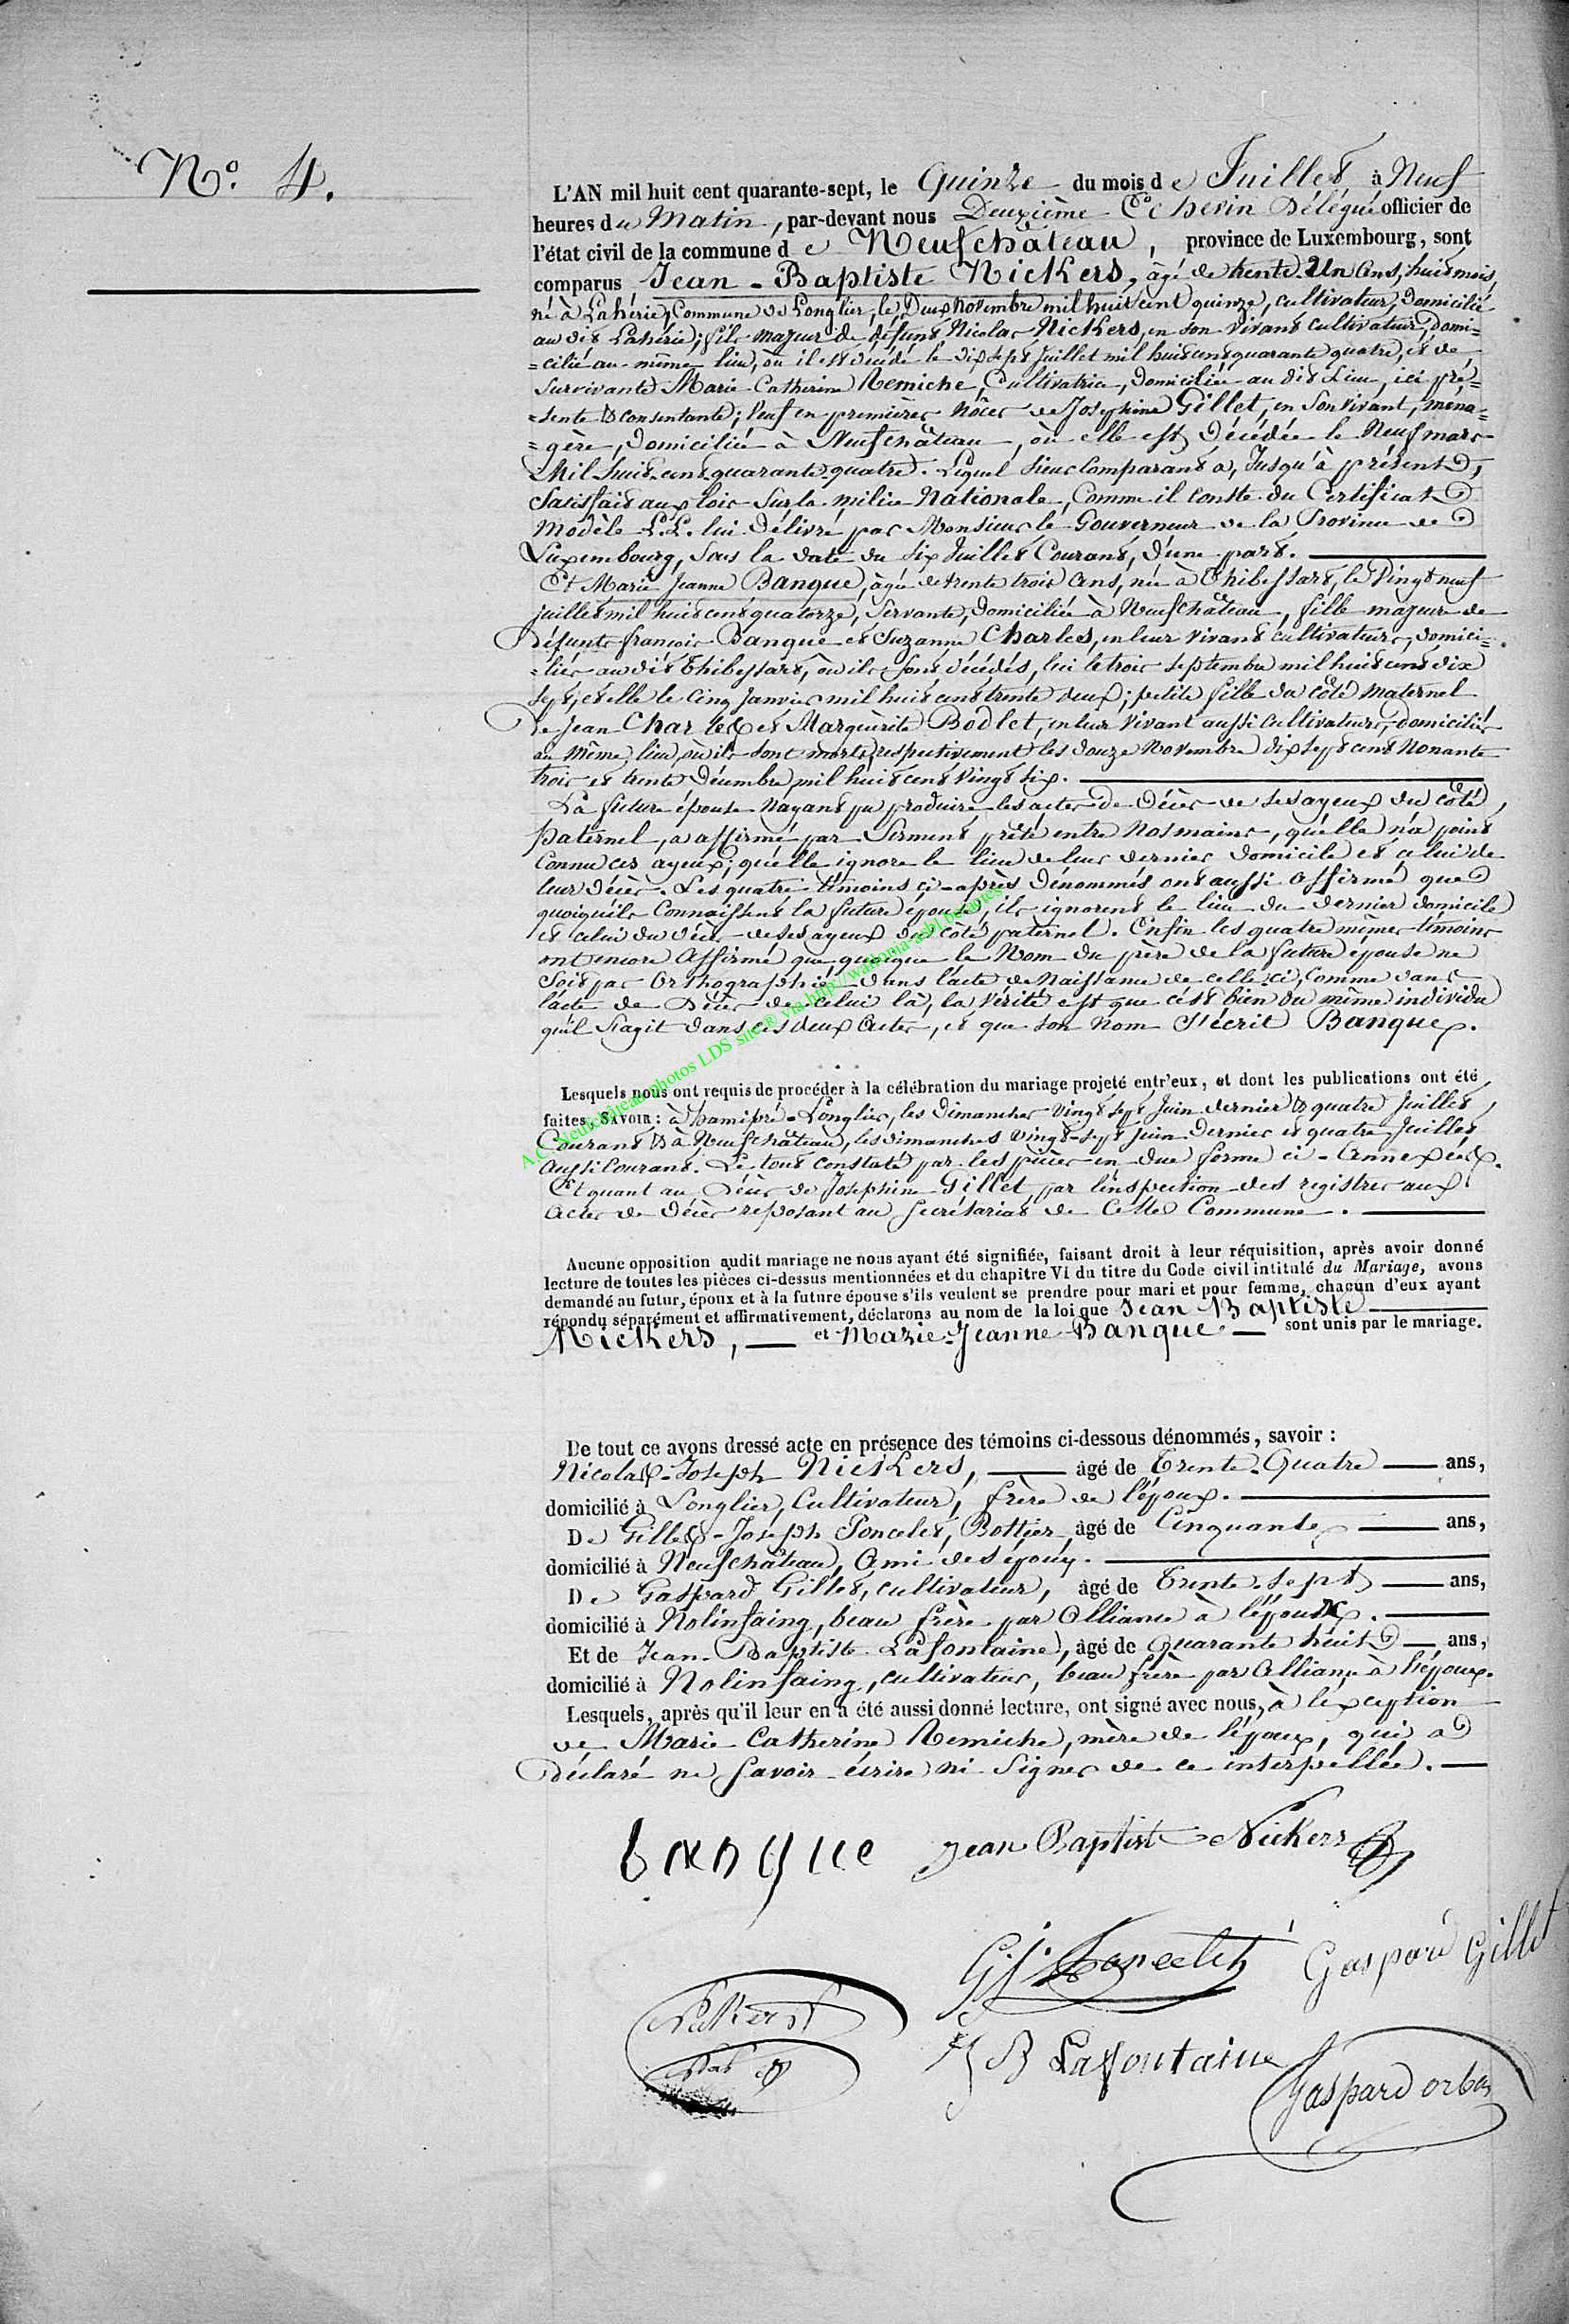 No. 4.
L'AN mil huit cent quarante-sept, le Quinze du mois de Juillet à Neuf
heures du Matin, par-devant nous Deuxième Echevin Délégué officier de
l'état civil de la commune de Neufchâteau, province de Luxembourg, sont
comparus Jean-Baptiste Nickers, âgé de trente-Un Ans, huit mois,
né à Lahérie, Commune de Longlier, le Deux Novembre mil huit cent quinze, cultivateur, Domicilié
au dit Lahérie; fils majeur de défunt Nicolas Nickers, en son vivant cultivateur, Domi=
=cilié au même lieu, où il est décédé le dix sept Juillet mil huit cent quarante quatre, et de
Survivante Marie Catherine Remiche, Cultivatrice, Domiciliée au dit Lieu, ici pré=
=sente & consentante; Veuf en premières Nôces de Josephine Gillet, en Son vivant, ména=
=gère, Domiciliée à Neufchâteau, où elle est Décédée le Neuf mars
Mil huit cent quarante-quatre. Lequel Sieur Comparant a, Jusqu'à présent,
Satisfait aux loix Sur la milice Nationale, Comme il Conste du Certificat
Modèle L.L. lui Délivré par Monsieur le Gouverneur de la Province de
Luxembourg, Sous la date du Six Juillet Courant, D'une part.
Et Marie Jeanne Banque, âgée de trente trois Ans, née à Thibessart, le Vingt neuf
juillet mil huit cent quatorze, Servante, Domiciliée à Neufchâteau, fille majeure de
Défunts françois Banque et Suzanne Charles, en leur vivant cultivateurs, domici=
=liés au dit Thibessart, où ils sont décédés, lui le trois Septembre mil huit cent dix
sept, et elle le Cinq Janvier mil huit cent trente deux; petite fille du côté Maternel
De Jean Charles et Marguerite Bodlet, en leur Vivant aussi Cultivateurs, domiciliés
au Même lieu, où ils sont morts, respectivement les douze Novembre dix sept cent Nonante
trois et trente Décembre mil huit cent Vingt six.
La future épouse N'ayant pu produire les actes de Décès de ses ayeux du côté
Paternel, a affirmé par Serment prêté entre Nos mains, qu'elle n'a point
Connu ces ayeux; qu'elle ignore le lieu de leur dernier Domicile et celui de
leur Décès. Les quatre témoins ci-après Dénommés ont aussi affirmé que
quoiqu'ils Connaissent la future épouse, ils ignorent le lieu du dernier domicile
et celui du décès de ses ayeux du côté paternel. Enfin les quatre mêmes témoins
ont encore Affirmé que quoique le Nom du père de la future épouse ne
Soit pas Orthographié dans l'acte de Naissance de celle-ci, Comme dans
l'acte de Décès de celui là, la Vérité est que c'est bien du même individu
qu'il S'agit dans ces deux Actes, et que Son Nom S'écrit Banque.
Lesquels nous ont requis de procéder à la célébration du mariage projeté entr'eux, et dont les publications ont été
faites, SAVOIR: à Hamipré-Longlier, les Dimanches Vingt Sept Juin dernier & quatre Juillet
Courant & à Neufchâteau, les dimanches Vingt-Sept Juin Dernier et quatre Juillet
Aussi Courant. Le tout constaté par les pièces en due forme ci-Annexées.
Et quant au Décès de Josephine Gillet, par l'inspection des registres aux
Actes de Décès reposant au Secrétariat de Cette Commune.
Aucune opposition audit mariage ne nous ayant été signifiée, faisant droit à leur réquisition, après avoir donné
lecture de toutes les pièces ci-dessus mentionnées et du chapitre VI du titre du Code civil intitulé du Mariage, avons
demandé au futur, époux et à la future épouse s'ils veulent se prendre pour mari et pour femme, chacun d'eux ayant
répondu séparément et affirmativement, déclarons au nom de la loi que Jean Baptiste
Nickers, et Marie-Jeanne Banque sont unis par le mariage.
De tout ce avons dressé acte en présence des témoins ci-dessous dénommés, savoir :
Nicolas-Joseph Nickers, âgé de Trente-Quatre ans,
domicilié à Longlier, Cultivateur, frère de l'époux.
De Gilles-Joseph Poncelet, Bottier, âgé de Cinquante ans,
domicilié à Neufchâteau, Ami des époux.
De Gaspard Gillet, cultivateur, âgé de Trente-sept ans,
domicilié à Nolinfaing, beau frère par Alliance à l'époux.
Et de Jean-Baptiste Lafontaine, âgé de Quarante huit ans,
domicilié à Nolinfaing, cultivateur, beau frère par Alliance à l'époux.
Lesquels, après qu'il leur en a été aussi donné lecture, ont signé avec nous, à l'exception
de Marie Catherine Remiche, mère de l'époux, qui a
Déclaré ne Savoir écrire ni Signer de ce interpellée.
banque Jean Baptiste Nickers
G.J. Poncelet Gaspard Gillet
Nickers
J B Lafontaine
Gaspard orban
A.C. Neufchâteau photos LDS site® via http://wallonia-asbl.be/actes